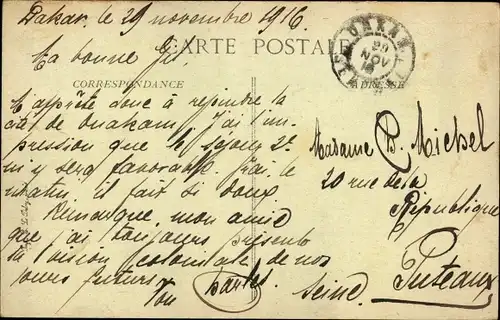 Dakar, le 29 novembre 1916
CARTE POSTALE
Ma bonne
CORRESPONDANCE
ADRESSE
OUAKAM
29
NOV
M'apprête donc à rejoindre la
cité de Ouakam. J'ai l'im-
pression que le séjour
m'y sera favorable. J'ai le
matin, il fait si doux
Remarque, mon amie
que j'ai toujours présente
la vision coloniale de nos
jours futurs.
Ton
Madame B. Michel
20 rue de la
République
Puteaux
Seine.